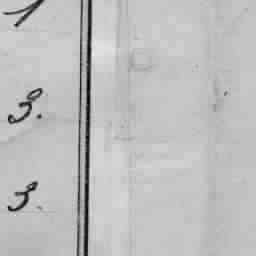 1
3.
3.